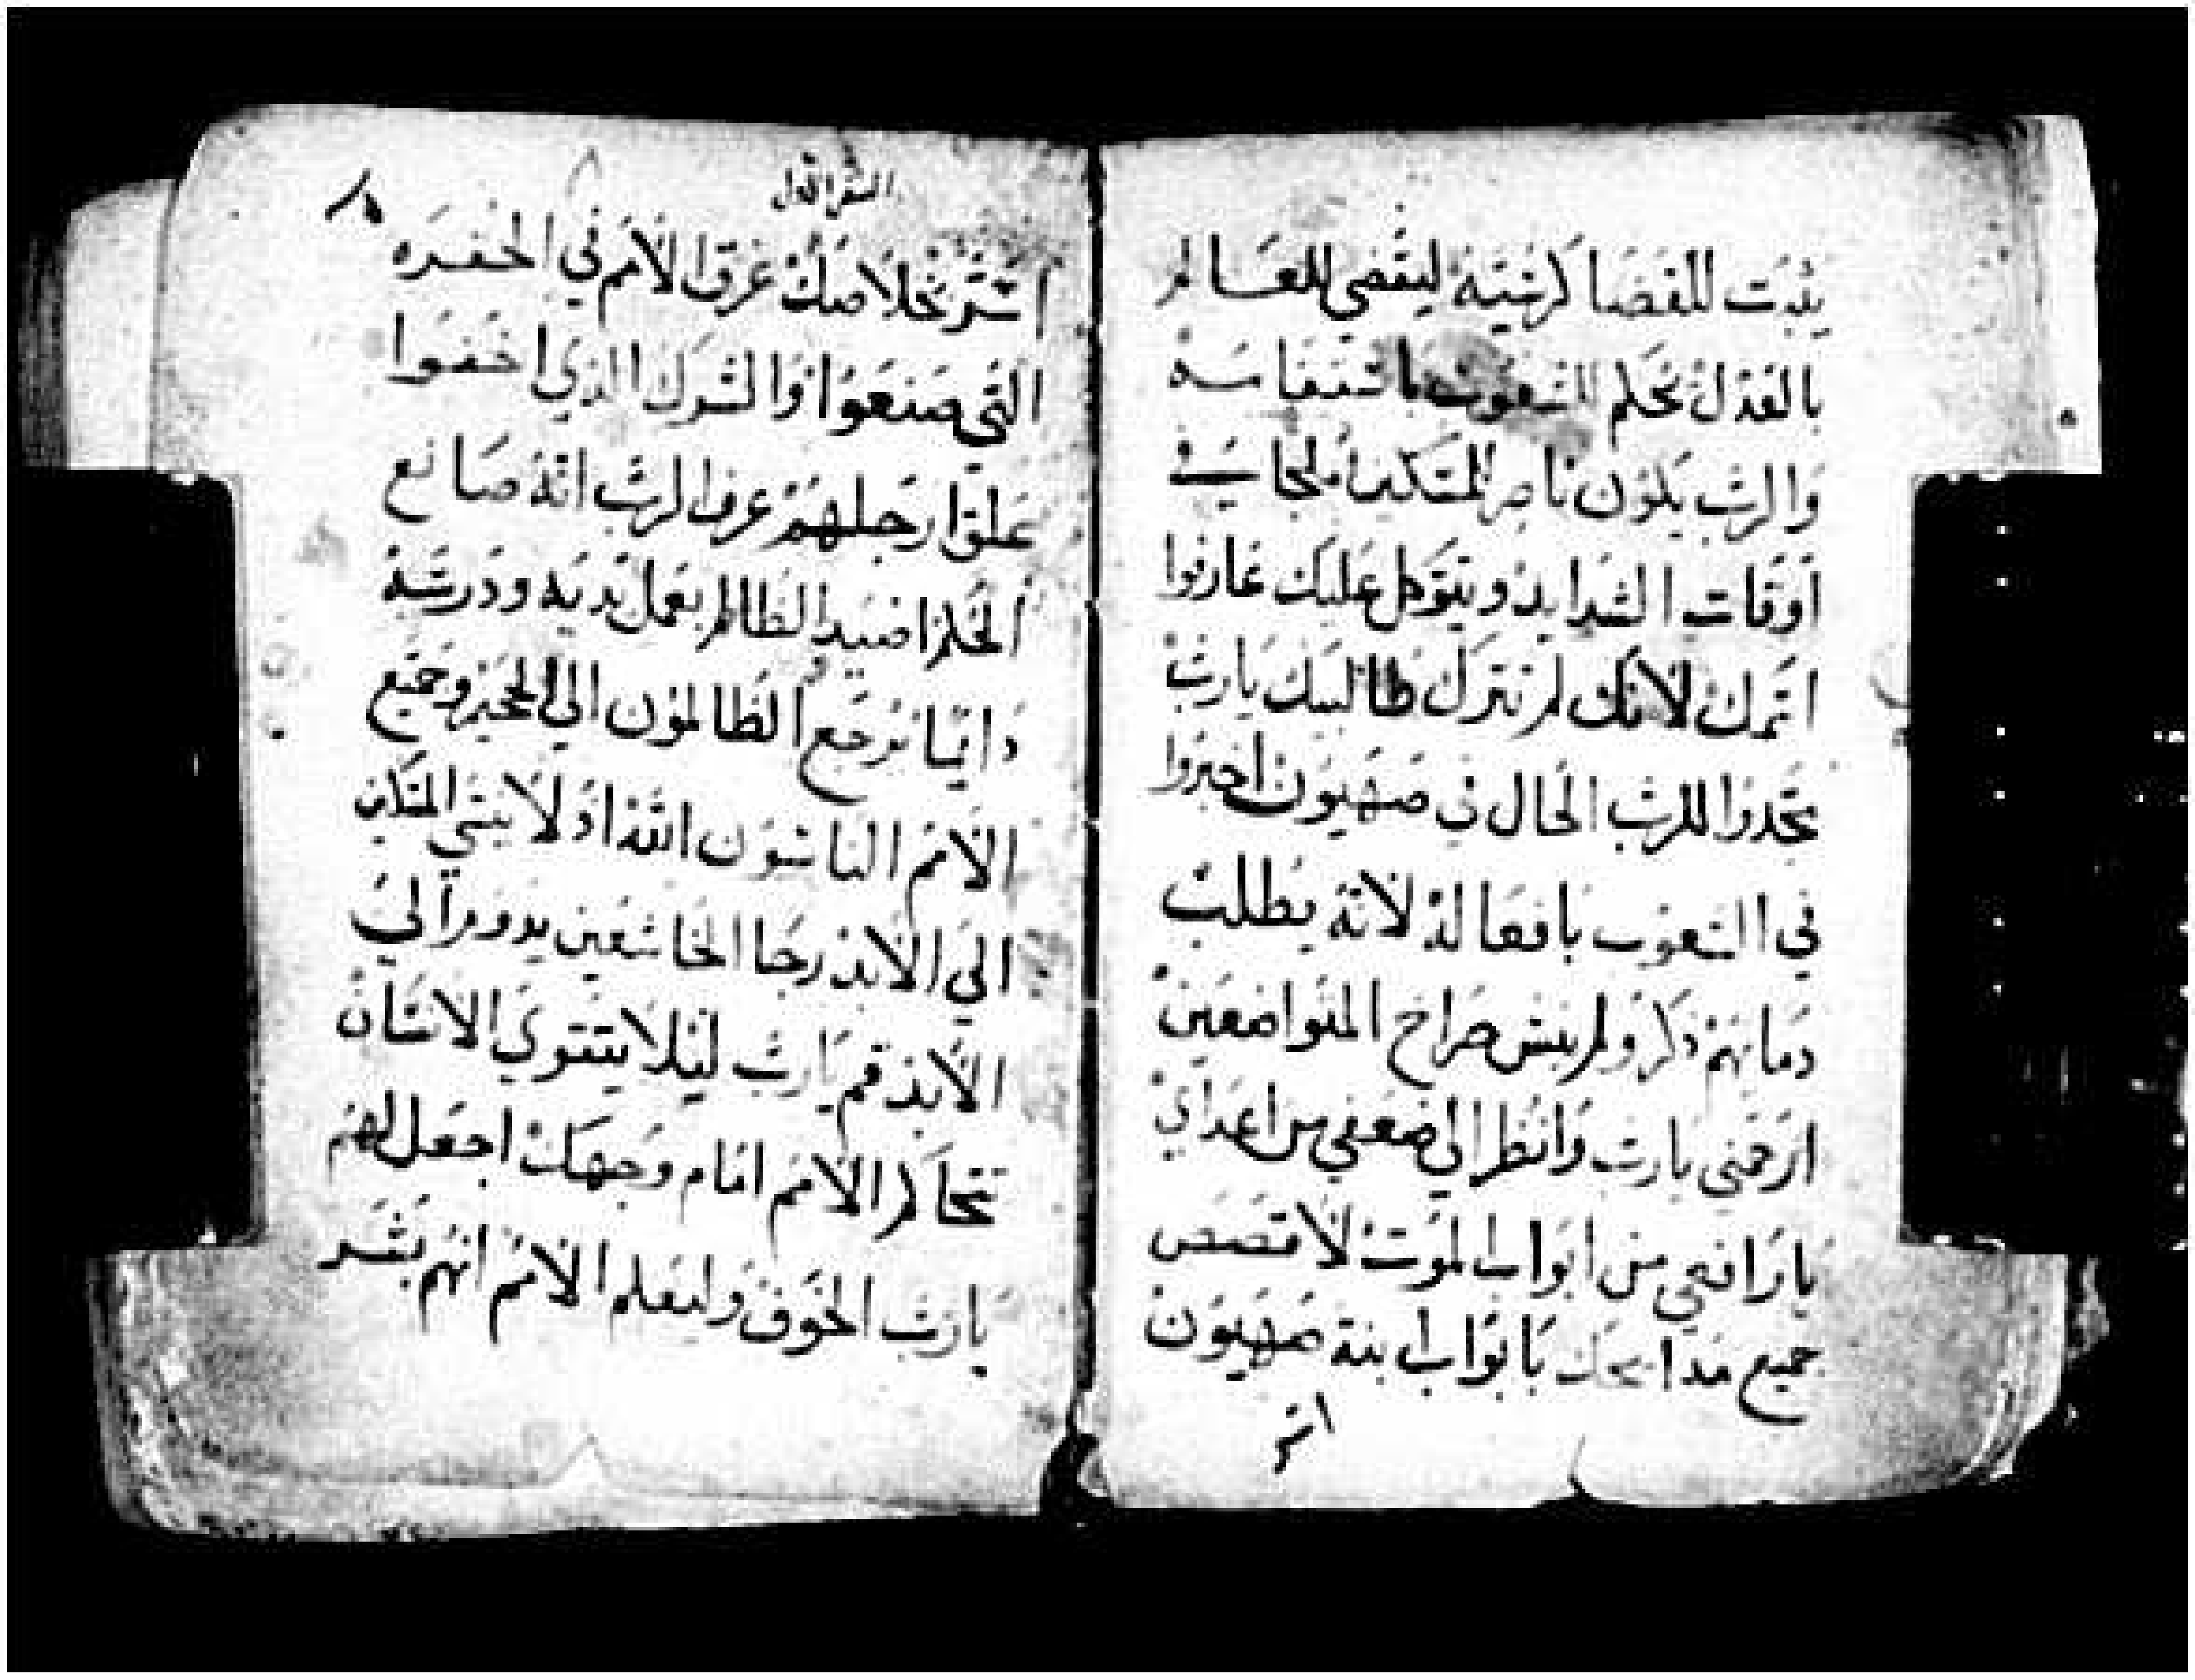 يثبت للقضا كرسيه ليقضي للعالم
بالعدل يحكم الشعوب باستقامه
والرب يكون ناصر المتكنا ملجا في
اوقات الشدايد ويتوكل عليك عارفوا
اسمك لانك لم تترك طالبيك يارب
مجدوا للرب الحال في صهيون اخبروا
في الشعوب بافعاله لانه يطلب
دمايهم ذكر ولم ينس صراخ المتواضعين
ارحمني يارب وانظر الي ضعفي من اعداي
يارافعي من ابواب الموت لاقصص
جميع مدايحك بابواب ابنة صهيون
اسر
السفر الاول
اسر بخلاصك غرقوا الامم في الحفره
التي صنعوا والشرك الذي اخفوا
علق ارجلهم عرف الرب انه صانع
الحكم اصيد الظالم بعمل يديه ودرسته
دايما ترجع الظالمون الي الجحيم وجميع
الامم الناسون الله اذ لا ينسي المتكن
الي الابد رجا الخاشعين يدوم الي
الابد قم يارب ليلا يتقوي الانسان
تتحاكم الامم امام وجهك اجعل لهم
يارب الخوف وليعلم الامم انهم بشر